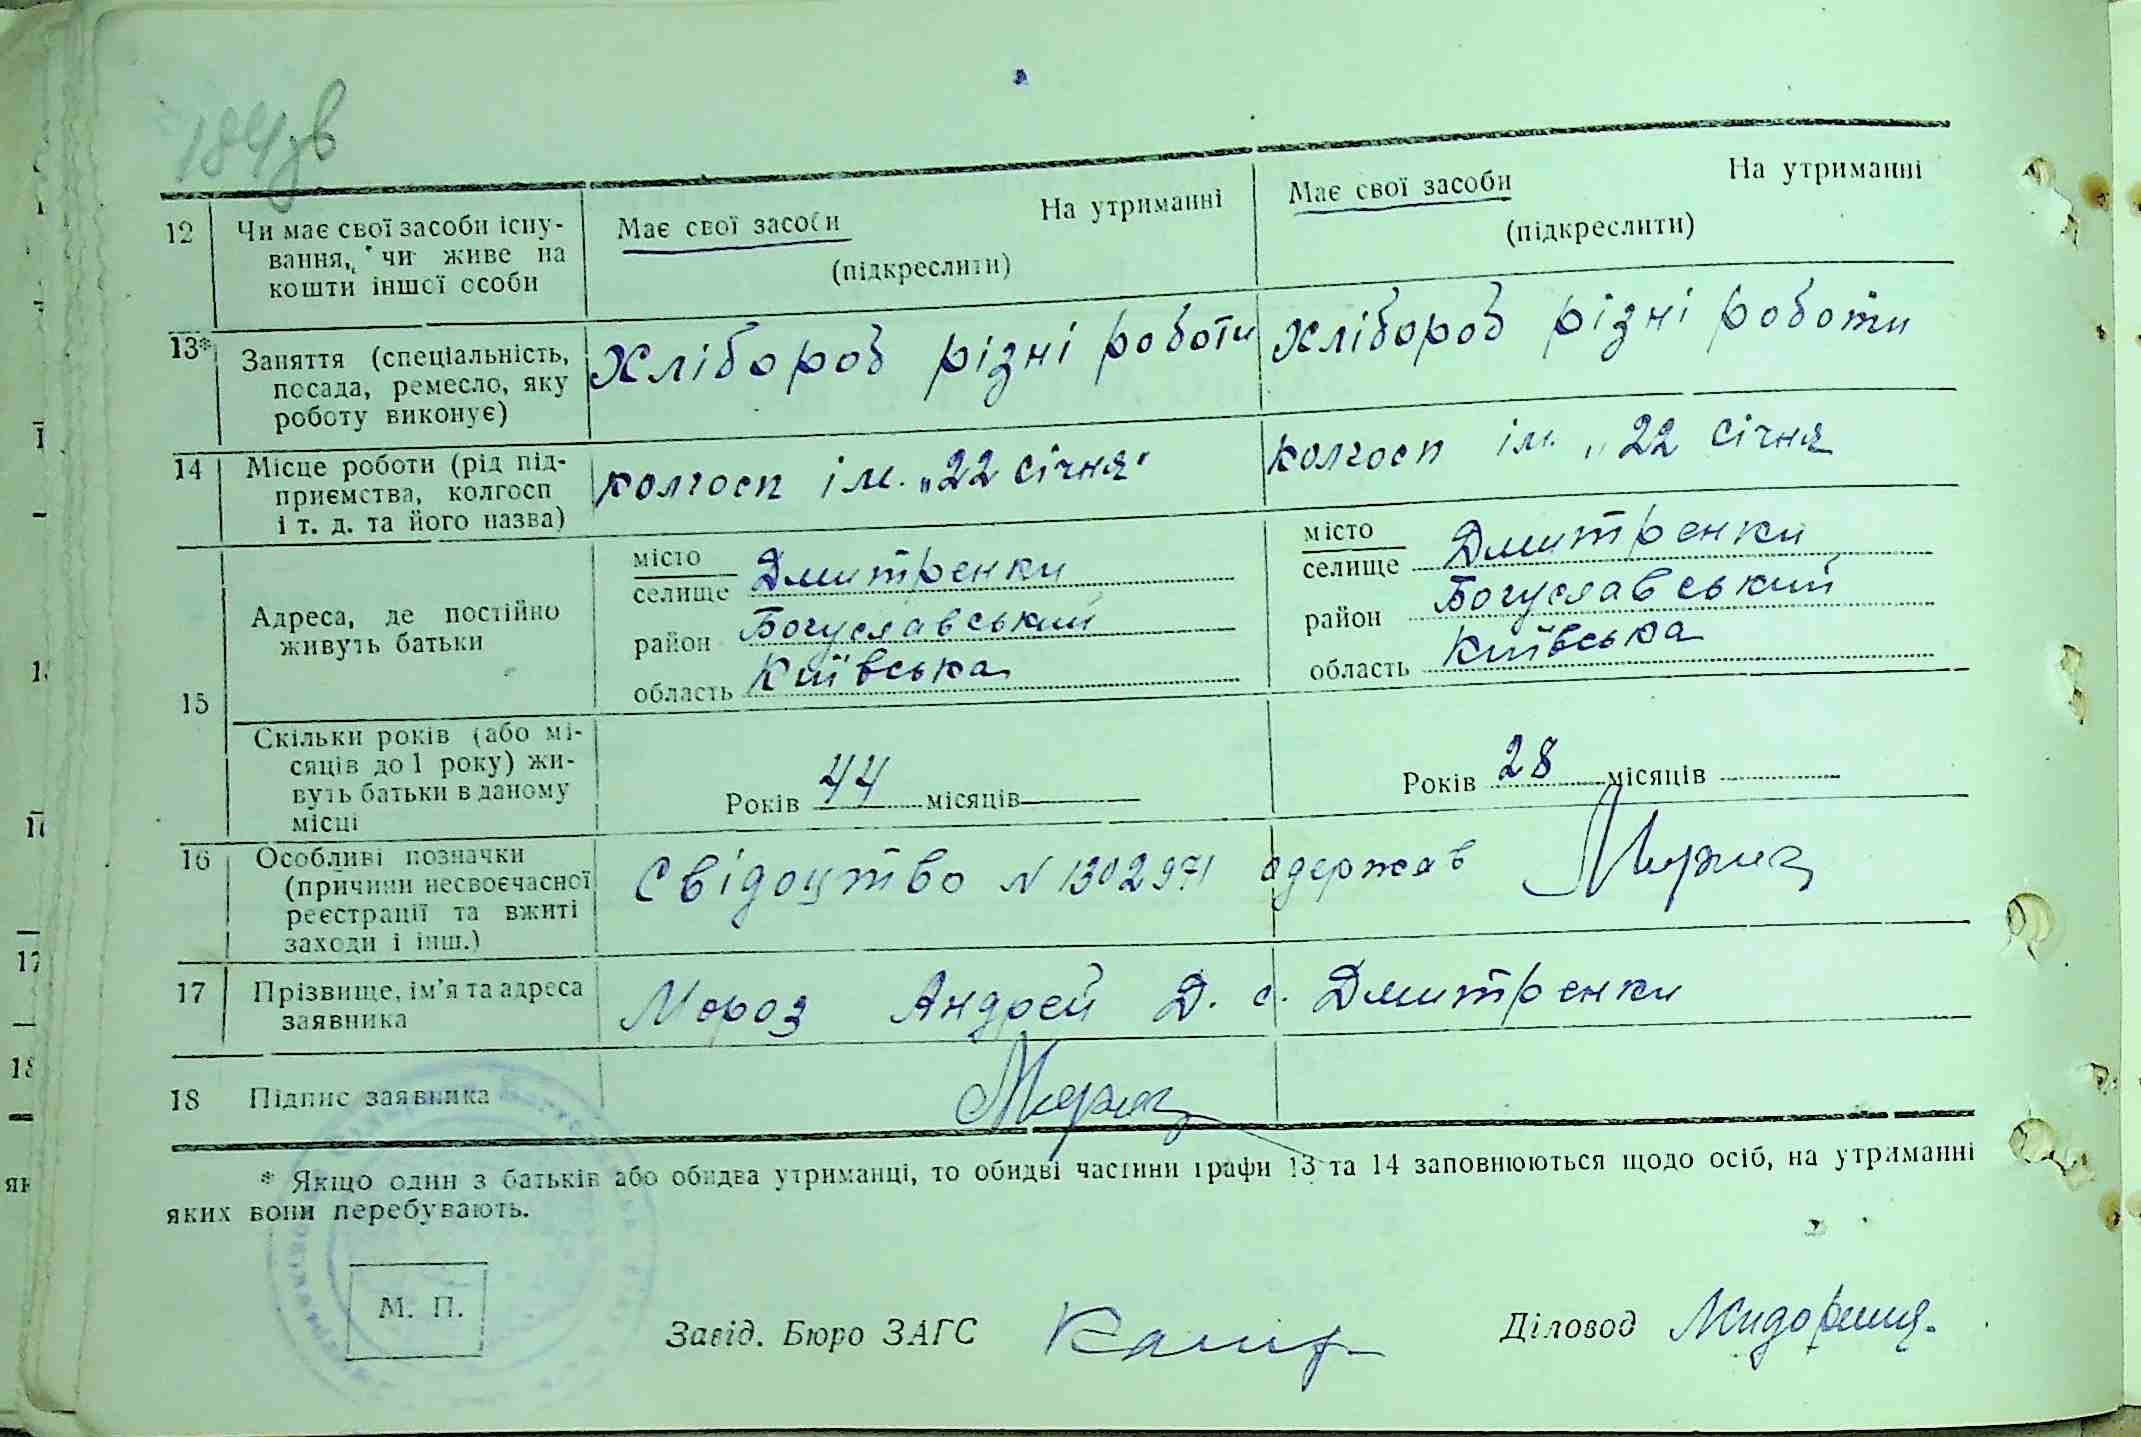 184зв
12 Чи має свої засоби існу-
вання, чи живе на
кошти іншої особи
Має свої засоби На утриманні
(підкреслити)
Має свої засоби На утриманні
(підкреслити)
13* Заняття (спеціальність,
посада, ремесло, яку
роботу виконує)
Хлібороб різні роботи
Хлібороб різні роботи
14 Місце роботи (рід під-
приємства, колгосп
і т. д. та його назва)
колгосп ім. „22 січня"
колгосп ім. „22 січня
15
Адреса, де постійно
живуть батьки
місто
селище Дмитренки
район Богуславський
область Київська
місто
селище Дмитренки
район Богуславський
область Київська
Скільки років (або мі-
сяців до 1 року) жи-
вуть батьки в даному
місці
Років 44 місяців
Років 28 місяців
16 Особливі позначки
(причини несвоєчасної
реєстрації та вжиті
заходи і інш.)
Свідоцтво N 1302971 одержав Мороз
17 Прізвище, ім'я та адреса
заявника
Мороз Андрей Д. с. Дмитренки
18 Підпис заявника
Мороз
* Якщо один з батьків або обидва утриманці, то обидві частини графи 13 та 14 заповнюються щодо осіб, на утриманні
яких вони перебувають.
М. П.
Завід. Бюро ЗАГС
Діловод